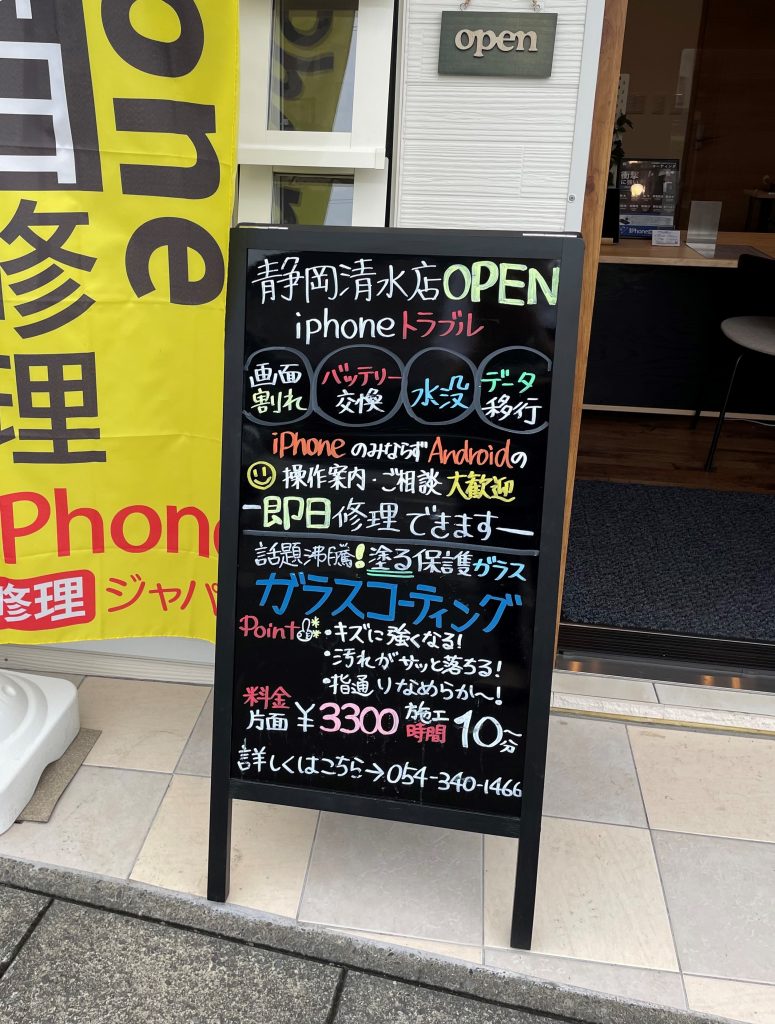 open
one
修
理
iPhone
修理 ジャパ
静岡清水店OPEN
iphoneトラブル
画面
割れ
バッテリー
交換
水没
データ
移行
iPhoneのみならずAndroidの
操作案内・ご相談 大歓迎
即日修理できます
話題沸騰!塗る保護ガラス
ガラスコーティング
Point
・キズに強くなる!
・汚れがサッと落ちる!
・指通りなめらか〜!
料金
片面 ¥3300 施工時間 10分〜
詳しくはこちら→054-340-1466